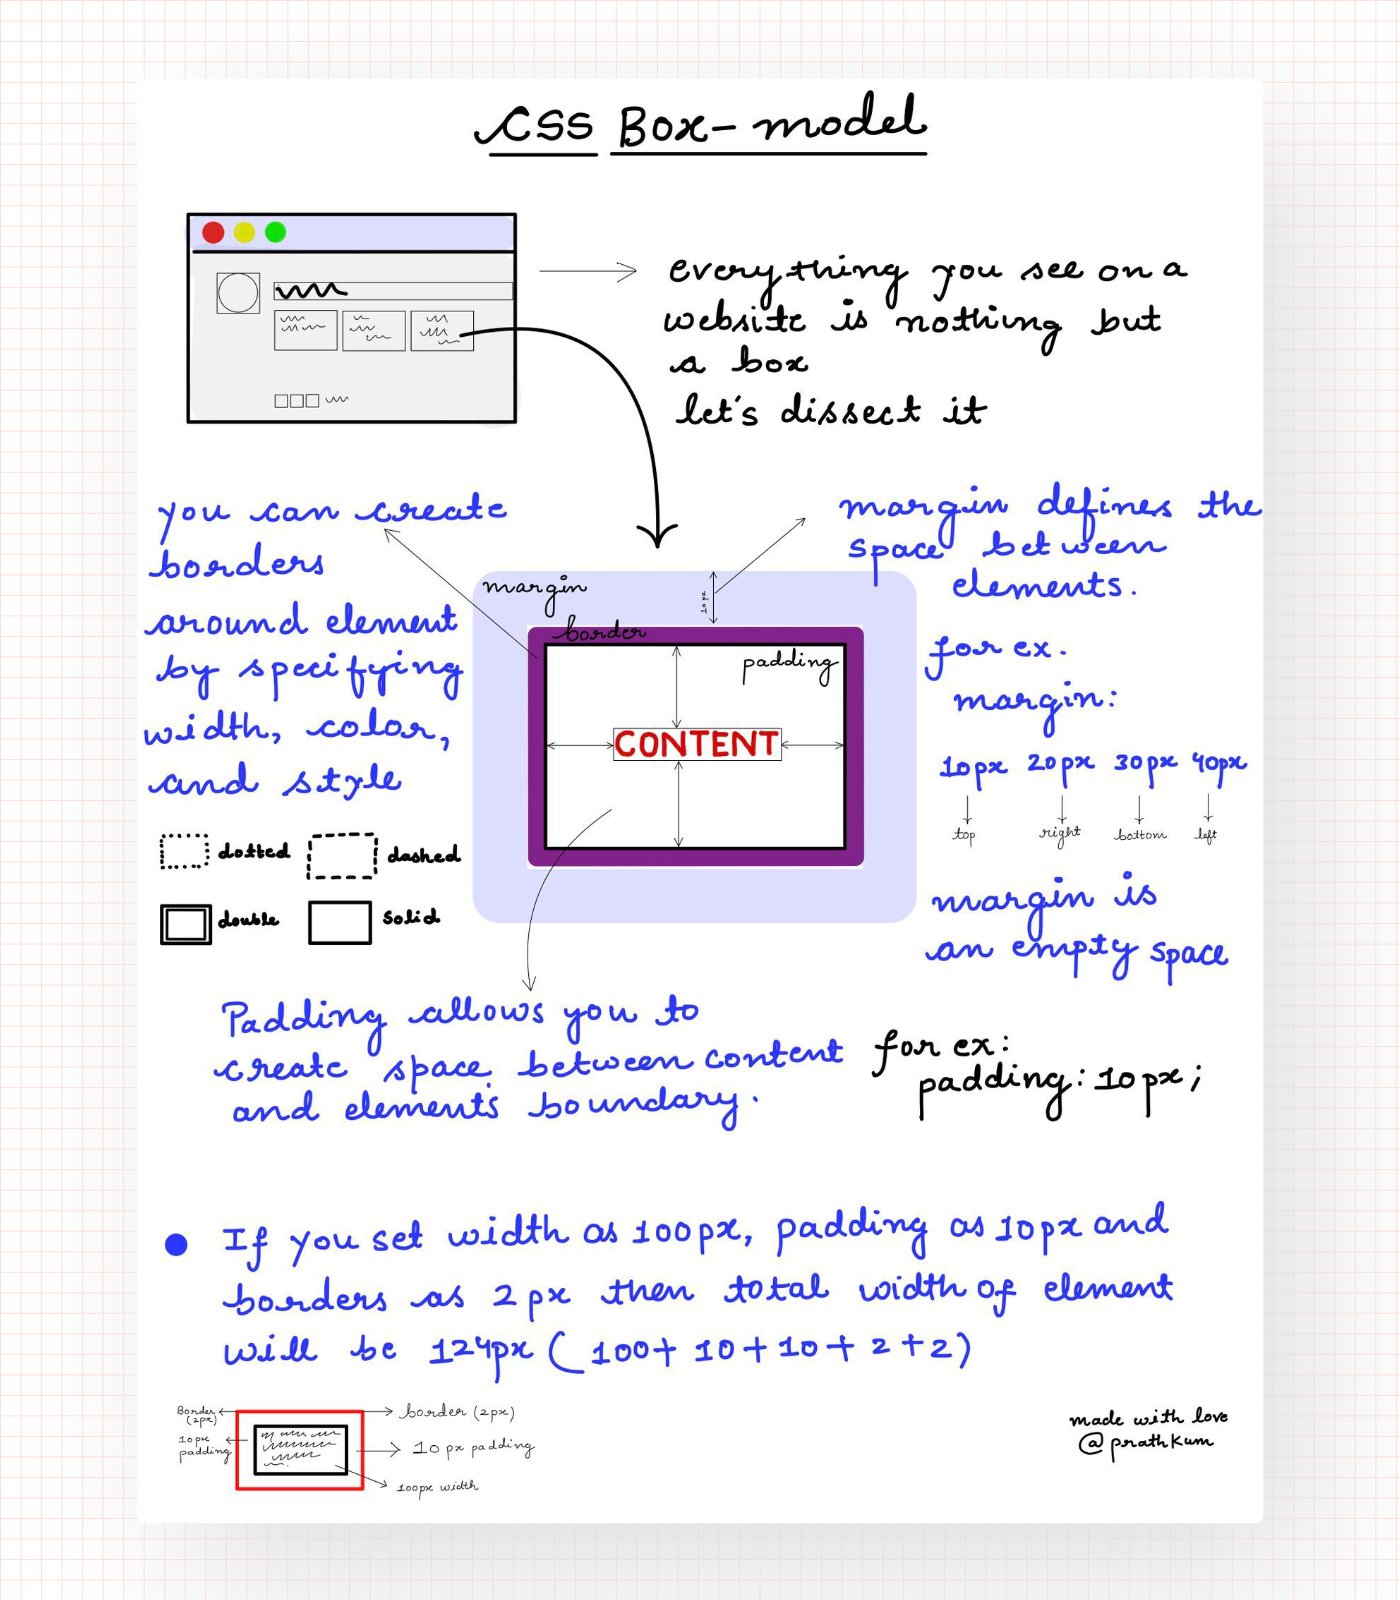 CSS Box-model
everything you see on a
website is nothing but
a box
let's dissect it
you can create
borders
around element
by specifying
width, color,
and style
dotted
dashed
double
Solid
margin
10px
border
padding
CONTENT
margin defines the
space between
elements.
for ex.
margin:
10px 20px 30px 40px
top right bottom left
margin is
an empty space
Padding allows you to
create space between content
and elements boundary.
for ex:
padding: 10px;
If you set width as 100px, padding as 10px and
borders as 2px then total width of element
will be 124px (100+10+10+2+2)
Border
(2px)
10px
padding
border (2px)
10px padding
100px width
made with love
@prathkum